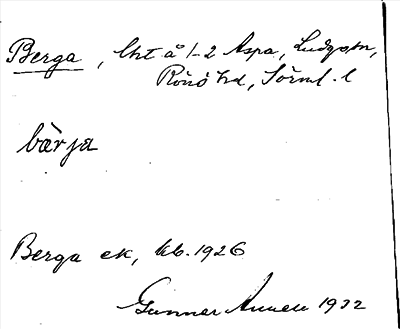 Berga, Cht å 1-2 Aspa, Ludgo sn,
Rönö hd, Sörml. l
bàrja
Berga ek, kb. 1926
Gunnar 1932